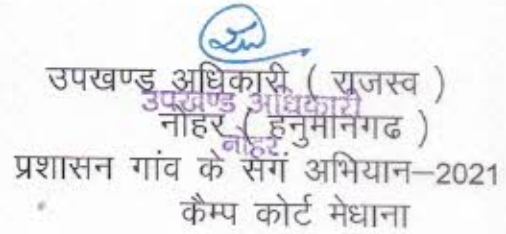 उपखण्ड अधिकारी ( राजस्व )
उपखण्ड अधिकारी
नोहर ( हनुमानगढ )
नोहर
प्रशासन गांव के संगं अभियान–2021
कैम्प कोर्ट मेधाना